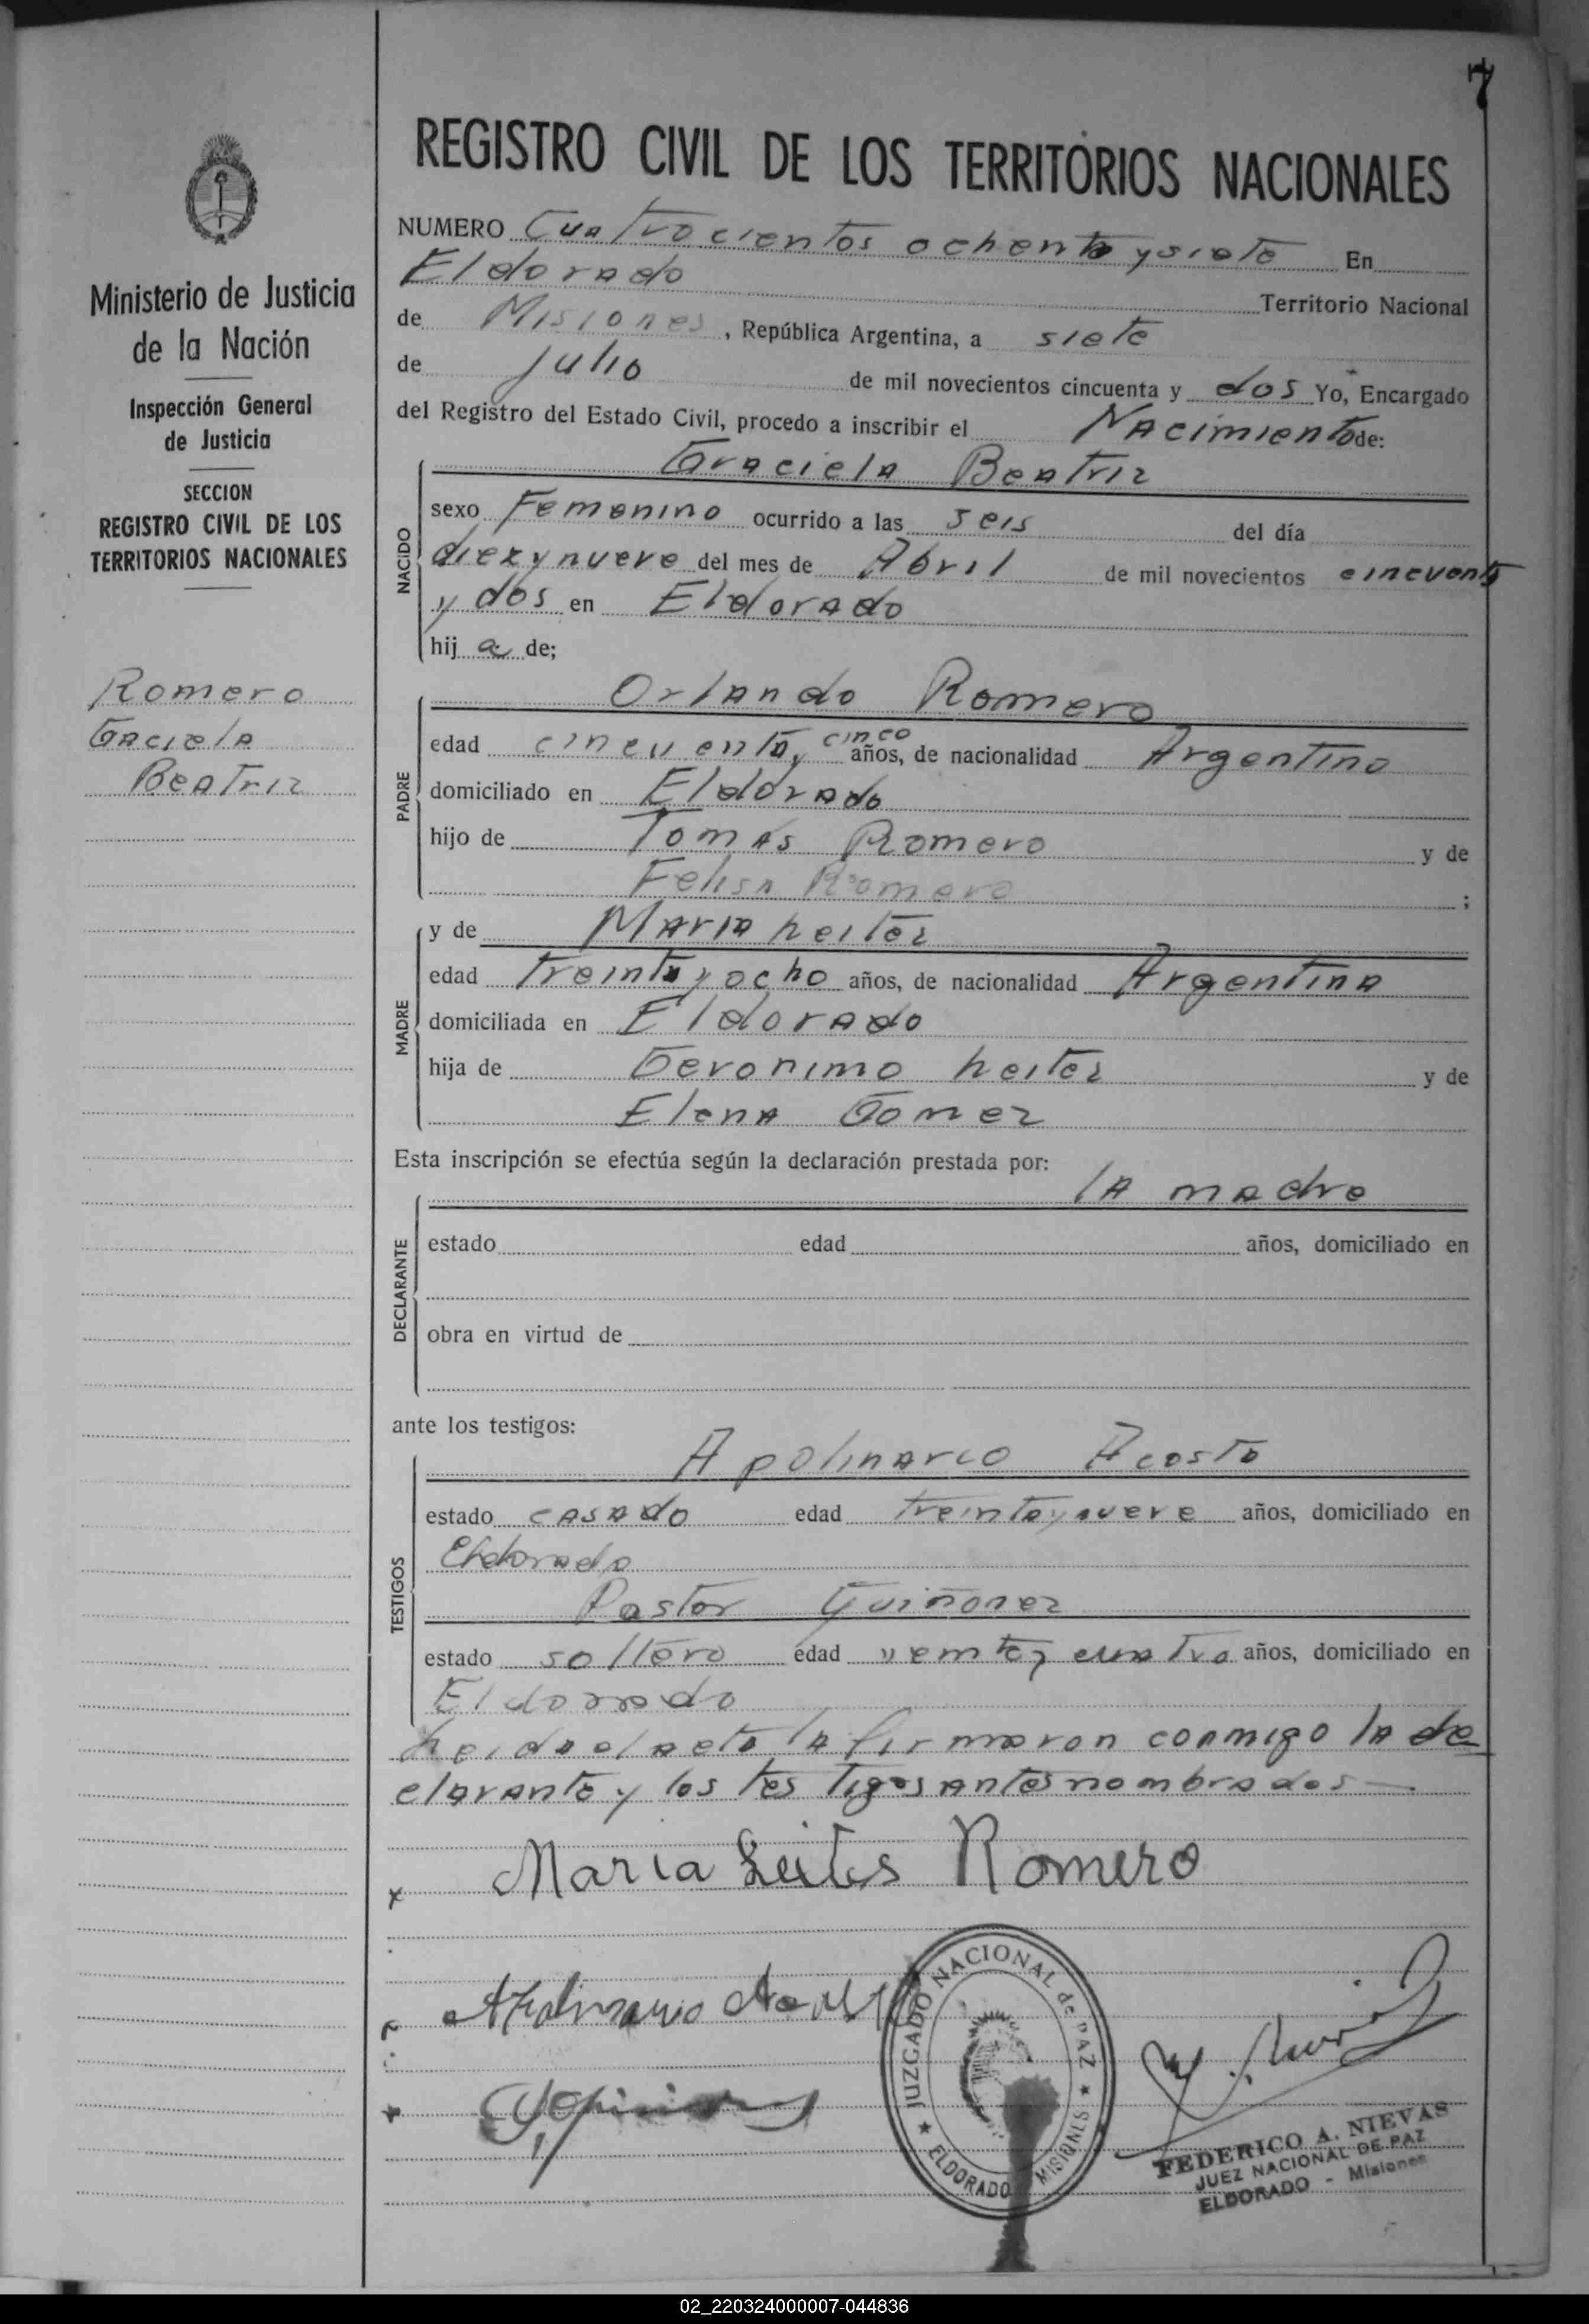 7
REGISTRO CIVIL DE LOS TERRITORIOS NACIONALES
Ministerio de Justicia
de la Nación
Inspección General
de Justicia
SECCION
REGISTRO CIVIL DE LOS
TERRITORIOS NACIONALES
Romero
Gaciela
Beatriz
NUMERO Cuatrocientos ochenta y siete En
Eldorado Territorio Nacional
de Misiones, República Argentina, a siete
de Julio de mil novecientos cincuenta y dos Yo, Encargado
del Registro del Estado Civil, procedo a inscribir el Nacimiento de:
NACIDO
Graciela Beatriz
sexo Femenino ocurrido a las seis del día
diez y nueve del mes de Abril de mil novecientos cincuenta
y dos en Eldorado
hij a de;
PADRE
Orlando Romero
edad cincuenta y cinco años, de nacionalidad Argentino
domiciliado en Eldorado
hijo de Tomás Romero y de
Felisa Romero ;
MADRE
y de Maria Leites
edad treinta y ocho años, de nacionalidad Argentina
domiciliada en Eldorado
hija de Geronimo Leites y de
Elena Gomez
Esta inscripción se efectúa según la declaración prestada por:
DECLARANTE
la madre
estado edad años, domiciliado en
obra en virtud de
ante los testigos:
TESTIGOS
Apolinario Acosta
estado casado edad treinta y nueve años, domiciliado en
Eldorado
Pastor Quiñonez
estado soltero edad veinte y cuatro años, domiciliado en
Eldorado
Leida el acta la firmaron conmigo la de
clarante y los testigos antes nombrados
Maria Leites Romero
Apolinario
JUZGADO NACIONAL de PAZ
ELDORADO MISIONES
FEDERICO A. NIEVAS
JUEZ NACIONAL DE PAZ
ELDORADO - Misiones
02_220324000007-044836